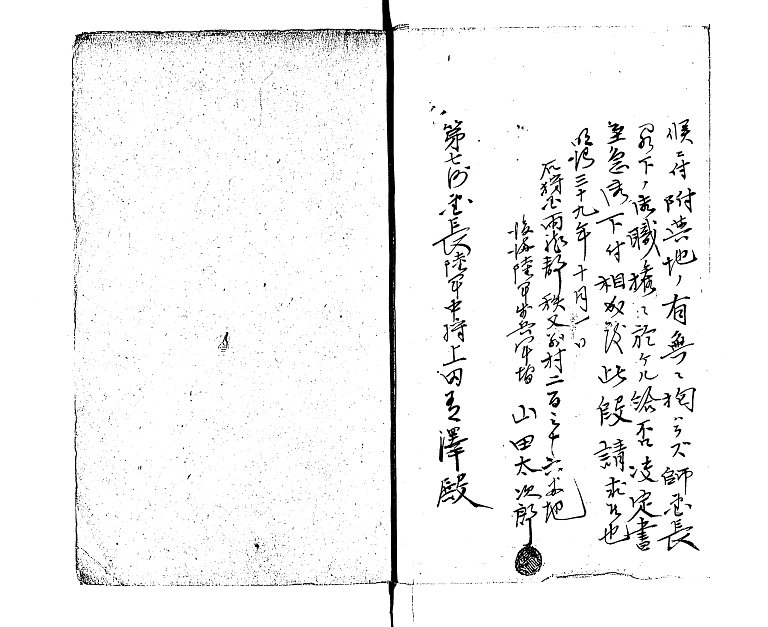 候ニ付附与地ノ有無ニ拘ハラズ師団長
閣下ノ御職権ニ於ケル給否決定書
至急御下付相成度此段請求候也
明治三十九年十月一日
石狩国雨竜郡秩父別村二百三十六番地
後備陸軍歩兵軍曹 山田太次郎
第七師団長陸軍中将上田有澤殿